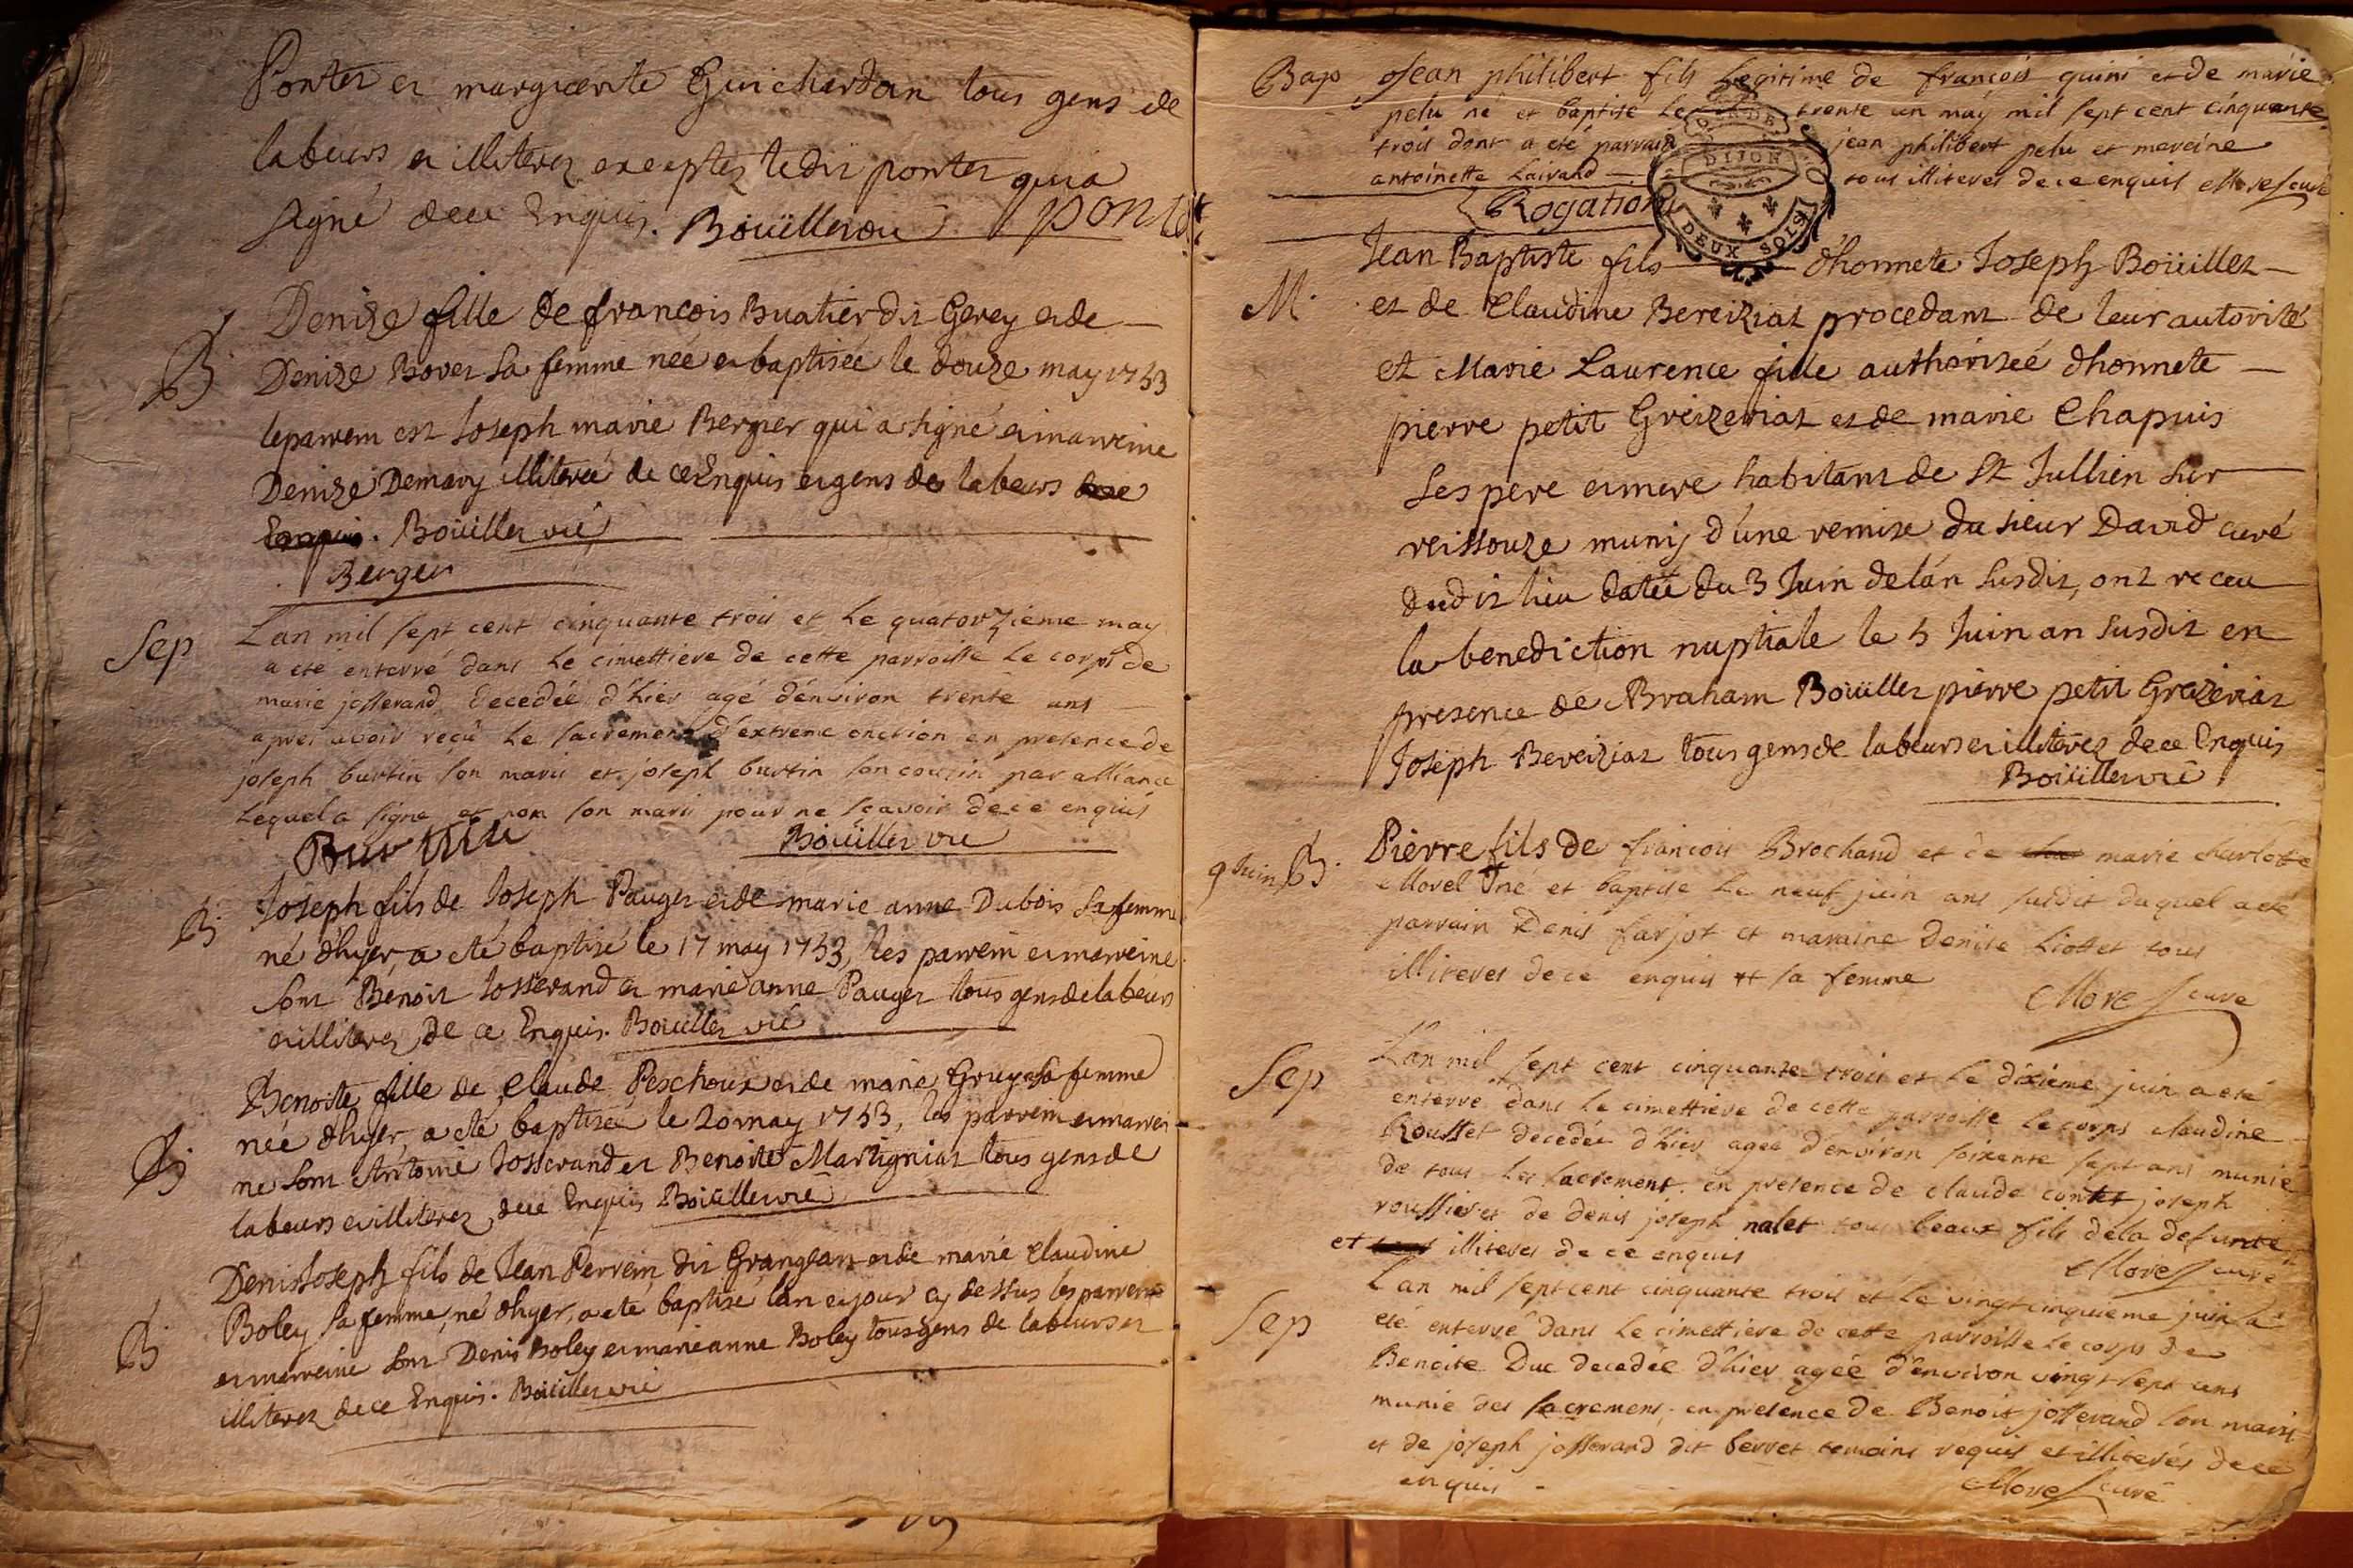 Ponter et marguerite Guichardan tous gens de
labeurs et illiterez exceptez ledit ponter qui a
signé de ce Enquis. Boüiller vic
ponter
B
Denize fille de francois Buatier dit Gerey et de
Denize Bover sa femme née et baptisée le douze may 1753
le parrein est Joseph marie Berger qui a signé et marreine
Denize Demary illiterée de ce Enquis et gens de labeurs
Enquis. Boüiller vic
Berger
Sep
Lan mil sept cent cinquante trois et le quatorzieme may
a eté enterré dans le cimettiere de cette parroisse le corps de
marie josserand decedée d'hier agé d'environ trente ans
apres avoir reçu le sacrement d'extreme onction en presence de
joseph burtin son marii et joseph burtin son couzin par alliance
lequel a signe et non son marii pour ne sçavoir de ce enquis
Burtin Boüiller vic
B.
Joseph fils de Joseph Pauger et de marie anne Dubois sa femme
né d'hyer, a eté baptisé le 17 may 1753, les parrein et marreine
sont Benoit Josserand et marie anne Pauger tous gens de labeurs
et illiterez de ce Enquis. Boüiller vic
B
Benoite fille de Claude Peschoux et de marie Gruyer sa femme
née d'hyer, a eté baptisée le 20 may 1753, les parrein et marrei-
ne sont Antoine Josserand et Benoite Martigniat tous gens de
labeurs et illiterez de ce Enquis Boüiller vic
B
Denis Joseph fils de Jean Perrein dit Grangean et de marie Claudine
Boley sa femme, né d'hyer, a eté baptisé l'an et jour cy dessus les parrein
et marreine sont Denis Boley et marie anne Boley tous gens de labeurs et
illiterez de ce Enquis. Boüiller vic
Bap
Jean philibert fils Legitime de francois quini et de marie
pelu né et baptisé le trente un may mil sept cent cinquante
trois dont a eté parrain jean philibert pelu et mareine
antoinette Lairand tous illiteres de ce enquis Morel curé
Rogations
DIJON
DEUX SOLS
M.
Jean Baptiste fils d'honnete Joseph Boüiller
et de Claudine Bereiziat procedant de leur autorité
et Marie Laurence fille authorizeé d'honnete
pierre petit Greizeriat et de marie Chapuis
ses pere et mere habitant de St Jullien sur
reissouze munis d'une remise du sieur David curé
dudit lieu datée du 3 Juin de l'an susdit, ont receu
la benediction nuptiale le 5 Juin an susdit en
presence de Abraham Boüiller pierre petit Greizeriat
Joseph Bereiziat tous gens de labeurs et illiterez de ce Enquis
Boüiller vic
9 Juin B.
Pierre fils de francois Brochand et de marie charlotte
Morel né et baptise le neuf juin ans susdit duquel a eté
parrain Denis farjot et maraine denise Liottet tous
illiteres de ce enquis et sa femme
Morel curé
Sep
Lan mil sept cent cinquante trois et le dixieme juin a eté
enterré dans le cimettiere de cette parroisse le corps claudine
Rousset decedée d'hier agée d'environ soixente sept ans munie
de tous les sacrement en presence de claude contet joseph
roussier et de denis joseph nalet tous beaux fils de la defunte
et illiteres de ce enquis
Morel curé
Sep
Lan mil sept cent cinquante trois et le vingt cinquieme juin a
eté enterré dans le cimettiere de cette parroisse le corps de
Benoite Duc decedée d'hier agée d'environ vingt sept ans
munie des sacremens en presence de Benoit josserand son marii
et de joseph josserand dit berret temoins requis et illiterés de ce
enquis
Morel curé